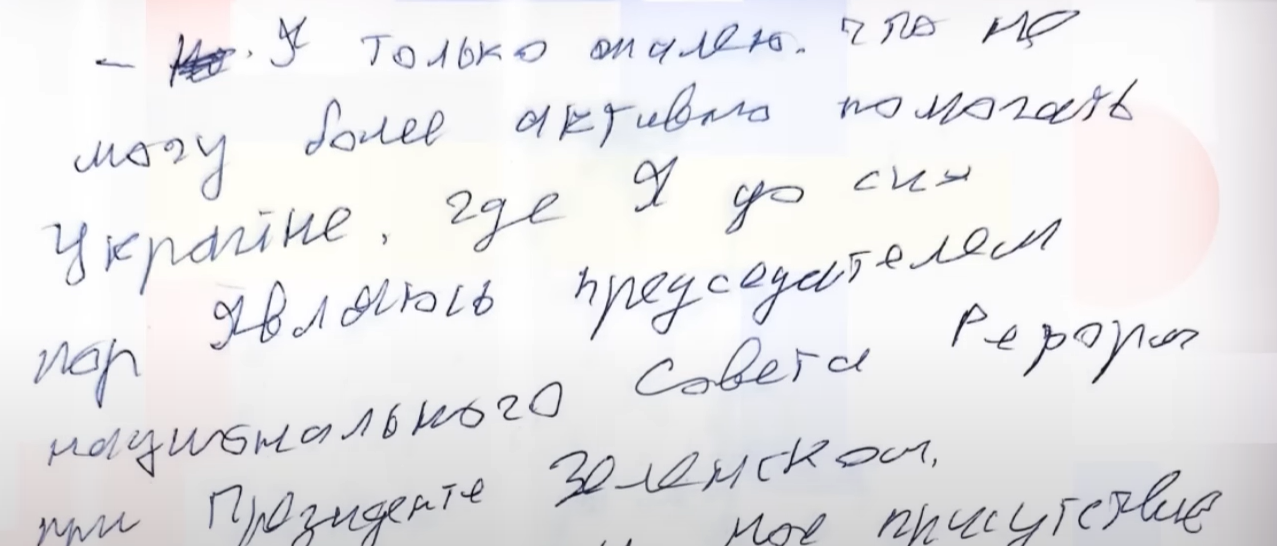 - Я только жалею. что не
могу более активно помогать
Украине, где Я до сих
пор являюсь председателем
национального Совета Реформ
при Президенте Зеленском.
мое присутствие